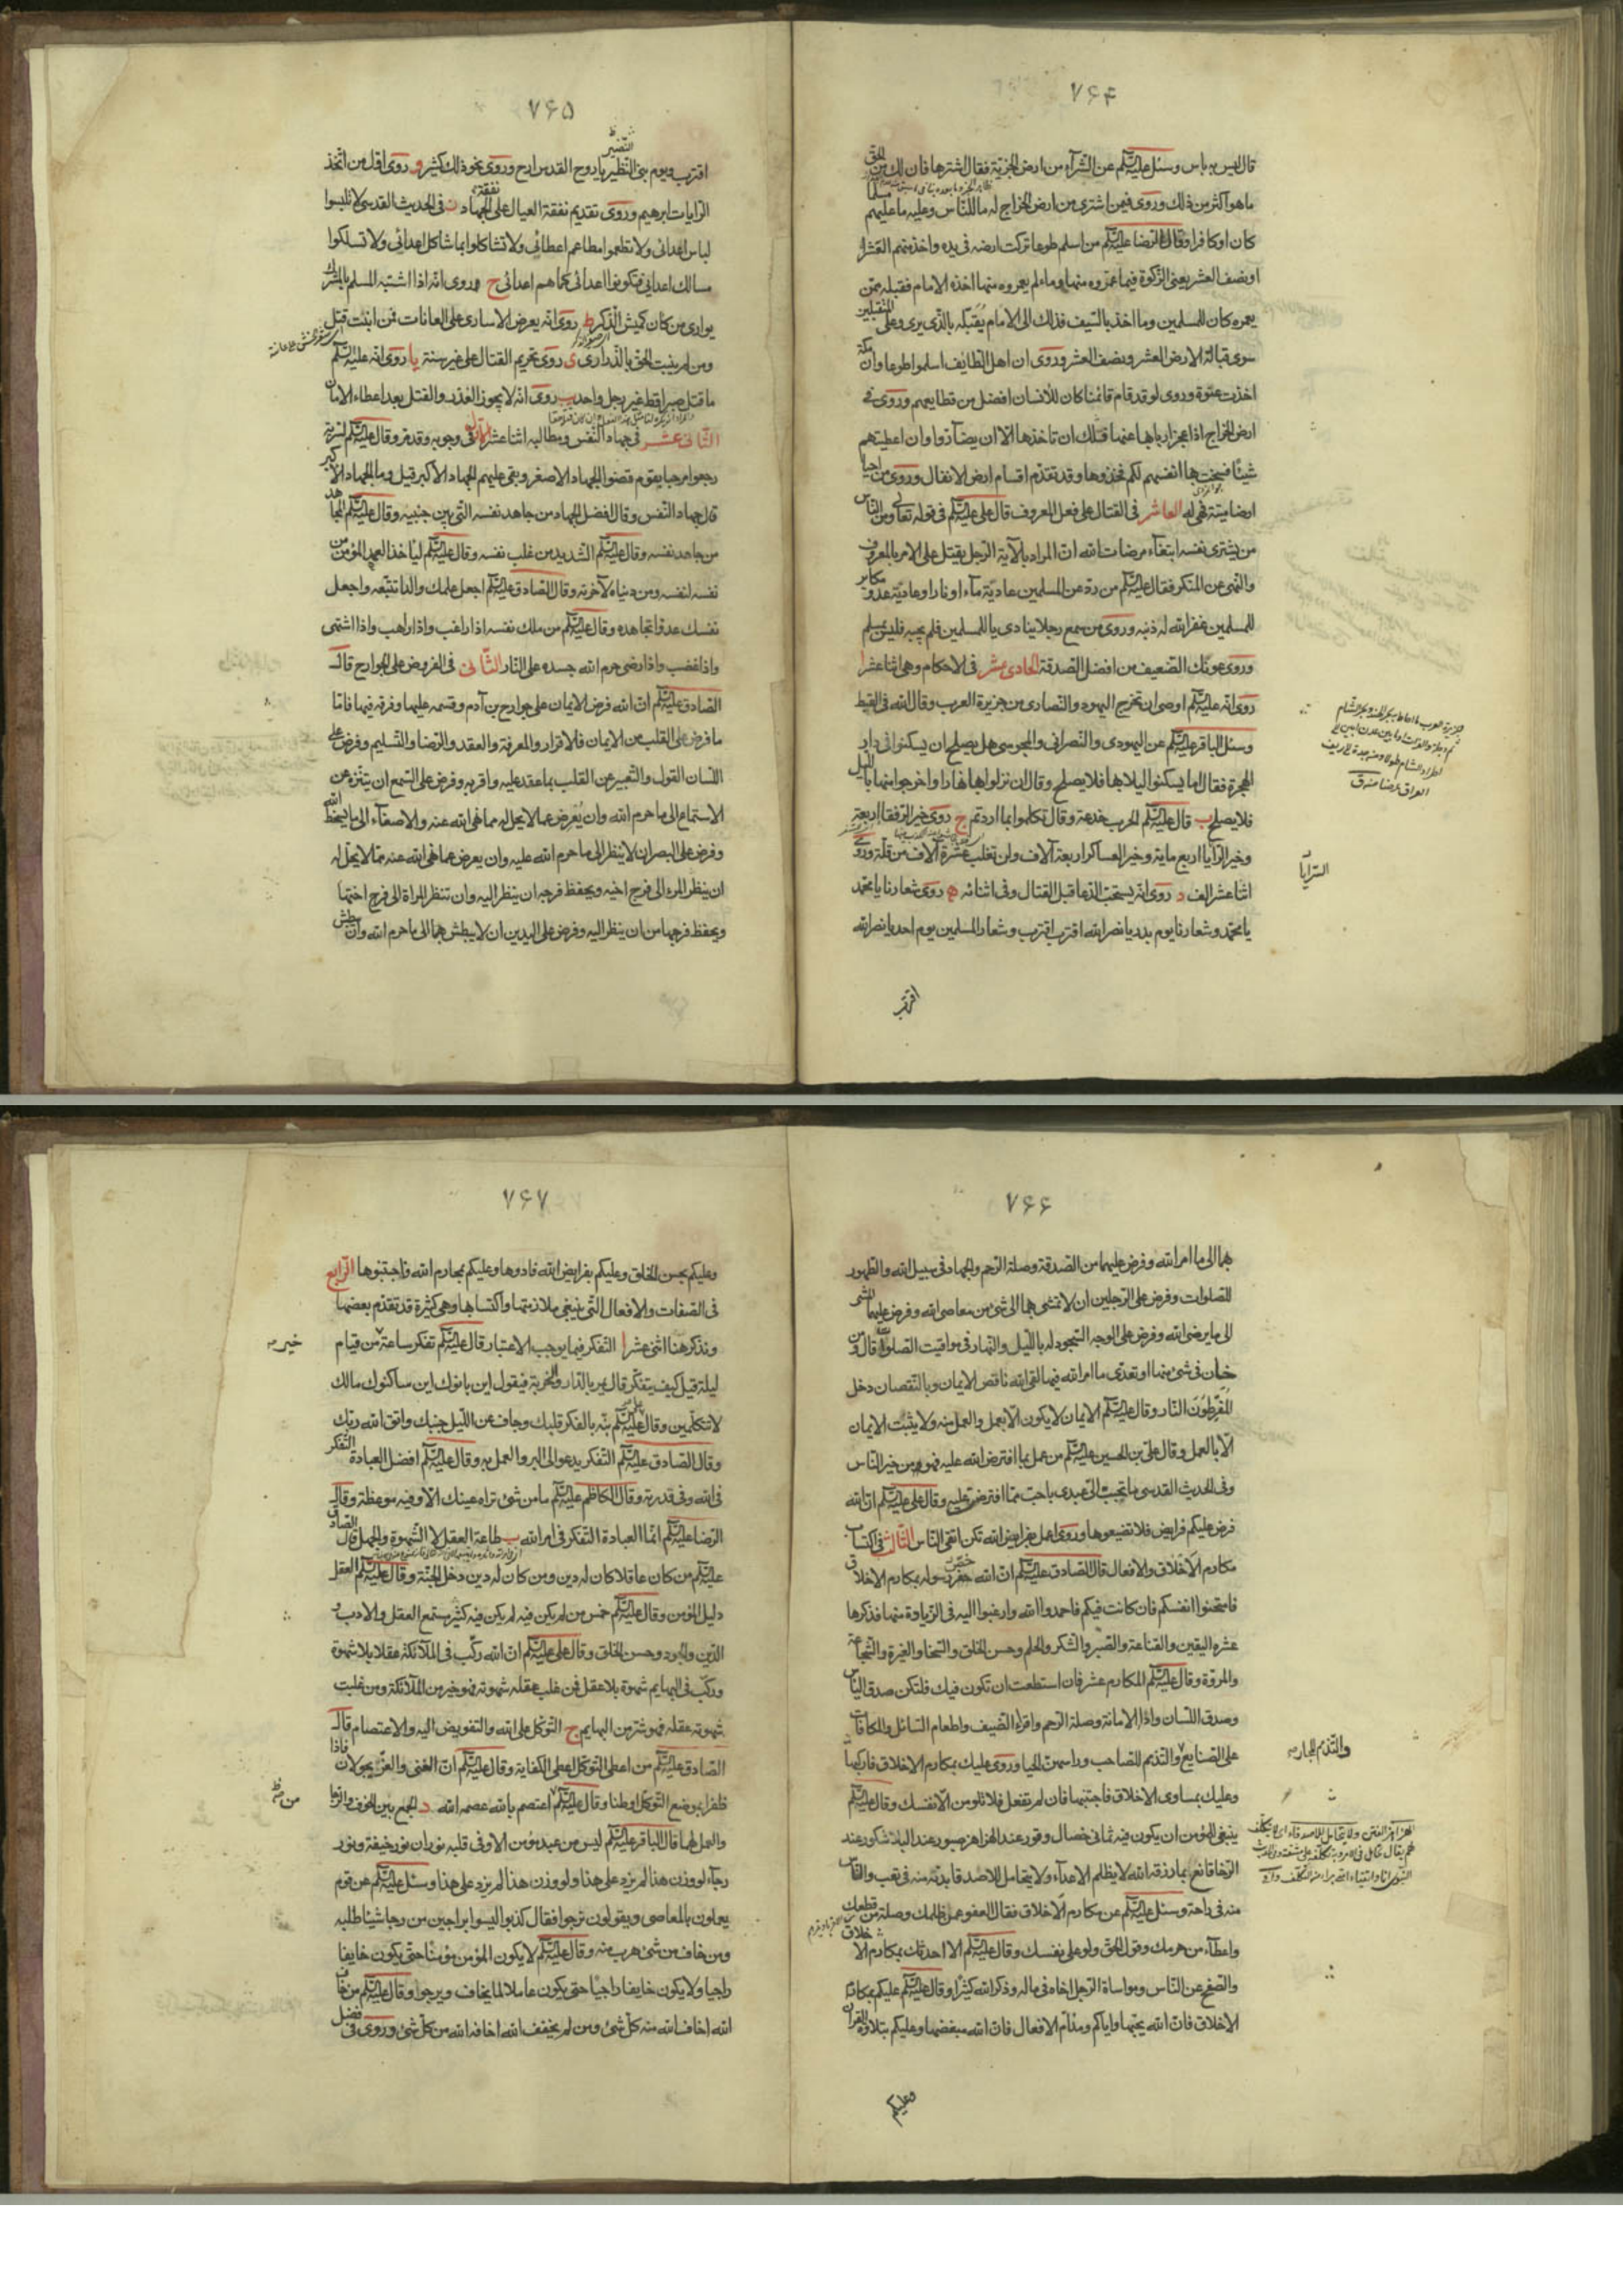 ۷۶۴
قال ليس به باس وسئل عليه السلام عن الشرآء من ارض الجزية فقال اشترها فان لك من الحق
ما هو اكثر من ذلك وروى فيمن اشترى من ارض الخراج له ما للناس وعليه ما عليهم مسلما
كان او كافرا وقال الرضا عليه السلام من اسلم طوعا تركت ارضه فى يده واخذ منهم العشر
او نصف العشر يعنى الزكوة فيما عمروه منها وما لم يعمروه منها اخذه الامام فقبله ممن
يعمره كان للمسلمين وما اخذ بالسيف فذلك الى الامام يقبله بالذى يرى وعلى المتقبلين
سوى قبالة الارض العشر ونصف العشر وروى ان اهل الطايف اسلموا طوعا وان مكة
اخذت عنوة وروى لو قد قام قائمنا كان للانسان افضل من قطايعهم وروى فى
ارض الخراج اذا عجز اربابها عنها فلك ان تاخذها الا ان يضآروا وان اعطيتهم
شيئا فسخت بها انفسهم لكم فخذوها وقد تقدم اقسام ارض الانفال وروى من احيا
ارضا ميتة فهى له العاشر فى القتال على فعل المعروف قال على عليه السلام فى قوله تعالى ومن الناس
من يشترى نفسه ابتغآء مرضات الله ان المراد بالآية الرجل يقتل على الامر بالمعروف
والنهى عن المنكر فقال عليه السلام من رد عن المسلمين عادية مآء او نار او عادية عدو مكابر
للمسلمين غفر الله له ذنبه وروى من سمع رجلا ينادى يا للمسلمين فلم يجبه فليس بمسلم
وروى عونك الضعيف من افضل الصدقة الحادى عشر فى الاحكام وهى اثنا عشر ا
روى انه عليه السلام اوصى ان تخرج اليهود والنصارى من جزيرة العرب وقال الله فى القبط
وسئل الباقر عليه السلام عن اليهودى والنصرانى والمجوسى هل يصلح ان يسكنوا فى دار
الهجرة فقال اما يسكنوا ليلا بها فلا يصلح وقال ان نزلوا بها نهارا واخرجوا منها بالليل
فلا يصلح ب قال عليه السلام الحرب خدعة وقال تكلموا بما اردتم ج روى خير الرفقا اربعة
وخير الرآيا اربع ماية وخير العساكر اربعة آلاف ولن تغلب عشرة آلاف من قلة وروى
اثنا عشر الف د روى انه يستحب الدعا قبل القتال وفى اثنائه ه روى شعارنا يا محمد
يا محمد وشعارنا يوم بدر يا نصر الله اقترب اقترب وشعار المسلمين يوم احد يا نصر الله
اقترب
السرايا
۷۶۵
اقترب ويوم بنى النظير يا روح القدس ارح وروى نحو ذلك كثير و روى اول من اتخذ
النضير
الرايات ابرهيم وروى تقديم نفقة العيال على نفقة الجهاد ز فى الحديث القدسى لا تلبسوا
لباس اعدائى ولا تطعموا مطاعم اعطائى ولا تشاكلوا بما شاكل اعدائى ولا تسلكوا
مسالك اعدايى فتكونوا اعدائى كما هم اعدائى ح وروى انه اذا اشتبه المسلم بالمشرك
يوارى من كان كميش الذكر ط روى انه يعرض الاسارى على العانات فمن انبتت قتل
ومن لم ينبت الحق بالذرارى ى روى تحريم القتال على غير سنة يا روى انه عليه السلام
ما قتل صبرا قط غير رجل واحد يب روى انه لا يجوز الغدر والقتل بعد اعطاء الامان
الثانى عشر فى جهاد النفس ومطالبه اثنا عشر الاول فى وجوبه وقد مر وقال عليه السلام لسرية
رجعوا مرحبا بقوم قضوا الجهاد الاصغر وبقى عليهم الجهاد الاكبر قيل وما الجهاد الاكبر
قال جهاد النفس وقال افضل الجهاد من جاهد نفسه التى بين جنبيه وقال عليه السلام المجاهد
من جاهد نفسه وقال عليه السلام الشديد من غلب نفسه وقال عليه السلام لياخذ العبد المؤمن من
نفسه لنفسه ومن دنياه لآخرته وقال الصادق عليه السلام اجعل علمك والدا تتبعه واجعل
نفسك عدوا تجاهده وقال عليه السلام من ملك نفسه اذا رغب واذا رهب واذا اشتهى
واذا غضب واذا رضى حرم الله جسده على النار الثانى فى الفروض على الجوارح قال
الصادق عليه السلام ان الله فرض الايمان على جوارح بن آدم وقسمه عليها وفرقه فيها فاما
ما فرض على القلب من الايمان فالاقرار والمعرفة والعقد والرضا والتسليم وفرض على
اللسان القول والتعبير عن القلب بما عقد عليه واقر به وفرض على السمع ان يتنزه عن
الاستماع الى ما حرم الله وان يعرض عما لا يحل له مما نهى الله عنه والاصغآء الى ما يسخط الله
وفرض على البصر ان لا ينظر الى ما حرم الله عليه وان يعرض عما نهى الله عنه مما لا يحل له
ان ينظر المرء الى فرج اخيه ويحفظ فرجه ان ينظر اليه وان تنظر المراة الى فرج اختها
ويحفظ فرجها من ان ينظر اليه وفرض على اليدين ان لا يبطش بهما الى ما حرم الله وان يبطش
۷۶۶
بهما الى ما امر الله وفرض عليهما من الصدقة وصلة الرحم والجهاد فى سبيل الله والطهور
للصلوات وفرض على الرجلين ان لا تمشى بهما الى شئ من معاصى الله وفرض عليهما المشى
الى ما يرضى الله وفرض على الوجه السجود له بالليل والنهار فى مواقيت الصلوة قال ومن
خان فى شئ منها او تعدى ما امر الله فيها لقى الله ناقص الايمان وبالنقصان دخل
المفرطون النار وقال عليه السلام الايمان لا يكون الا بعمل والعمل منه ولا يثبت الايمان
الا بالعمل وقال على بن الحسين عليه السلام من عمل بما افترض الله عليه فهو من خير الناس
وفى الحديث القدسى ما تحبب الى عبدى باحب مما افترضت عليه وقال على عليه السلام ان الله
فرض عليكم فرايض فلا تضيعوها وروى اعمل بفرايض الله تكن اتقى الناس الثالث فى اكتساب
مكارم الاخلاق والافعال قال الصادق عليه السلام ان الله خص رسوله بمكارم الاخلاق
فامتحنوا انفسكم فان كانت فيكم فاحمدوا الله وارغبوا اليه فى الزيادة منها فذكرها
عشره اليقين والقناعة والصبر والشكر والحلم وحسن الخلق والسخا والغيرة والشجاعة
والمروة وقال عليه السلام المكارم عشر فان استطعت ان تكون فيك فلتكن صدق الباس
وصدق اللسان واداء الامانة وصلة الرحم واقراء الضيف واطعام السائل والمكافات
على الصنايع والتذمم للصاحب وراسهن الحيا وروى عليك بمكارم الاخلاق فاركبها
والتذمم للجار
وعليك بمساوى الاخلاق فاجتنبها فان لم تفعل فلا تلومن الا نفسك وقال عليه السلام
ينبغى للمؤمن ان يكون فيه ثمانى خصال وقور عند الهزاهز صبور عند البلا شكور عند
الرخا قانع بما رزقه الله لا يظلم الاعدآء ولا يتحامل للاصدقا بدنه منه فى تعب والناس
منه فى راحة وسئل عليه السلام عن مكارم الاخلاق فقال العفو عمن ظلمك وصلة من قطعك
واعطآء من حرمك وقول الحق ولو على نفسك وقال عليه السلام الا احدثك بمكارم الاخلاق
والصفح عن الناس ومواساة الرجل اخاه فى ماله وذكر الله كثيرا وقال عليه السلام عليكم بمكارم
الاخلاق فان الله يحبها واياكم ومذام الافعال فان الله يبغضها وعليكم بتلاوة القرآن
وعليكم
۷۶۷
وعليكم بحسن الخلق وعليكم بفرايض الله فادوها وعليكم بمحارم الله فاجتنبوها الرابع
فى الصفات والافعال التى ينبغى ملازمتها واكتسابها وهى كثيرة قد تقدم بعضها
ونذكر هنا اثنى عشر ا التفكر فيما يوجب الاعتبار قال عليه السلام تفكر ساعة من قيام
خير
ليلة قيل كيف يتفكر قال يمر بالدار والخربة فيقول اين بانوك اين ساكنوك مالك
لا تتكلمين وقال عليه السلام نبه بالفكر قلبك وجاف عن الليل جنبك واتق الله ربك
وقال الصادق عليه السلام التفكر يدعو الى البر والعمل به وقال عليه السلام افضل العبادة التفكر
فى الله وفى قدرته وقال الكاظم عليه السلام ما من شئ تراه عينك الا وفيه موعظة وقال
الرضا عليه السلام انما العبادة التفكر فى امر الله ب طاعة العقل لا الشهوة والجهل قال الصادق
عليه السلام من كان عاقلا كان له دين ومن كان له دين دخل الجنة وقال عليه السلام العقل
دليل المؤمن وقال عليه السلام خمس من لم يكن فيه لم يكن فيه كثير مستمتع العقل والادب و
الدين والجود وحسن الخلق وقال على عليه السلام ان الله ركب فى الملآئكة عقلا بلا شهوة
وركب فى البهايم شهوة بلا عقل فمن غلب عقله شهوته فهو خير من الملآئكة ومن غلبت
شهوته عقله فهو شر من البهايم ج التوكل على الله والتفويض اليه والاعتصام قال
الصادق عليه السلام من اعطى التوكل اعطى الكفاية وقال عليه السلام ان الغنى والعز يجولان فاذا
ظفرا بموضع التوكل اوطنا وقال عليه السلام اعتصم بالله عصمه الله د الجمع بين الخوف والرجا
من
والعمل لهما قال الباقر عليه السلام ليس من عبد مؤمن الا وفى قلبه نوران نور خيفة ونور
رجآء لو وزن هذا لم يزد على هذا ولو وزن هذا لم يزد على هذا وسئل عليه السلام عن قوم
يعملون بالمعاصى ويقولون نرجو فقال كذبوا ليسوا براجين من رجا شيئا طلبه
ومن خاف من شئ هرب منه وقال عليه السلام لا يكون المؤمن مؤمنا حتى يكون خايفا
راجيا ولا يكون خايفا راجيا حتى يكون عاملا لما يخاف ويرجو وقال عليه السلام من خاف
الله اخاف الله منه كل شئ ومن لم يخف الله اخافه الله من كل شئ وروى فى فضل